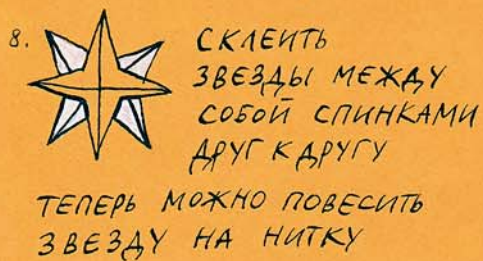 8.
СКЛЕИТЬ
ЗВЕЗДЫ МЕЖДУ
СОБОЙ СПИНКАМИ
ДРУГ К ДРУГУ
ТЕПЕРЬ МОЖНО ПОВЕСИТЬ
ЗВЕЗДУ НА НИТКУ